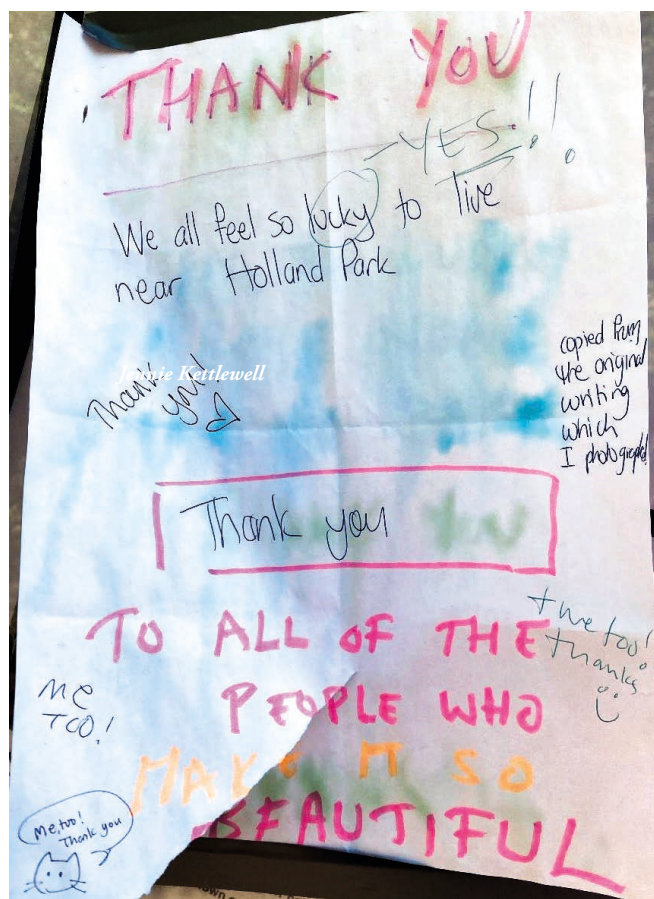 THANK YOU
-YES!!
We all feel so lucky to live
near Holland Park
Jennie Kettlewell
Thank
you!
copied from
the original
writing
which
I photographed
Thank you
TO ALL OF THE
PEOPLE WHO
MAKE IT SO
BEAUTIFUL
+ me too!
thanks
ME
TOO!
Me, too!
Thank you